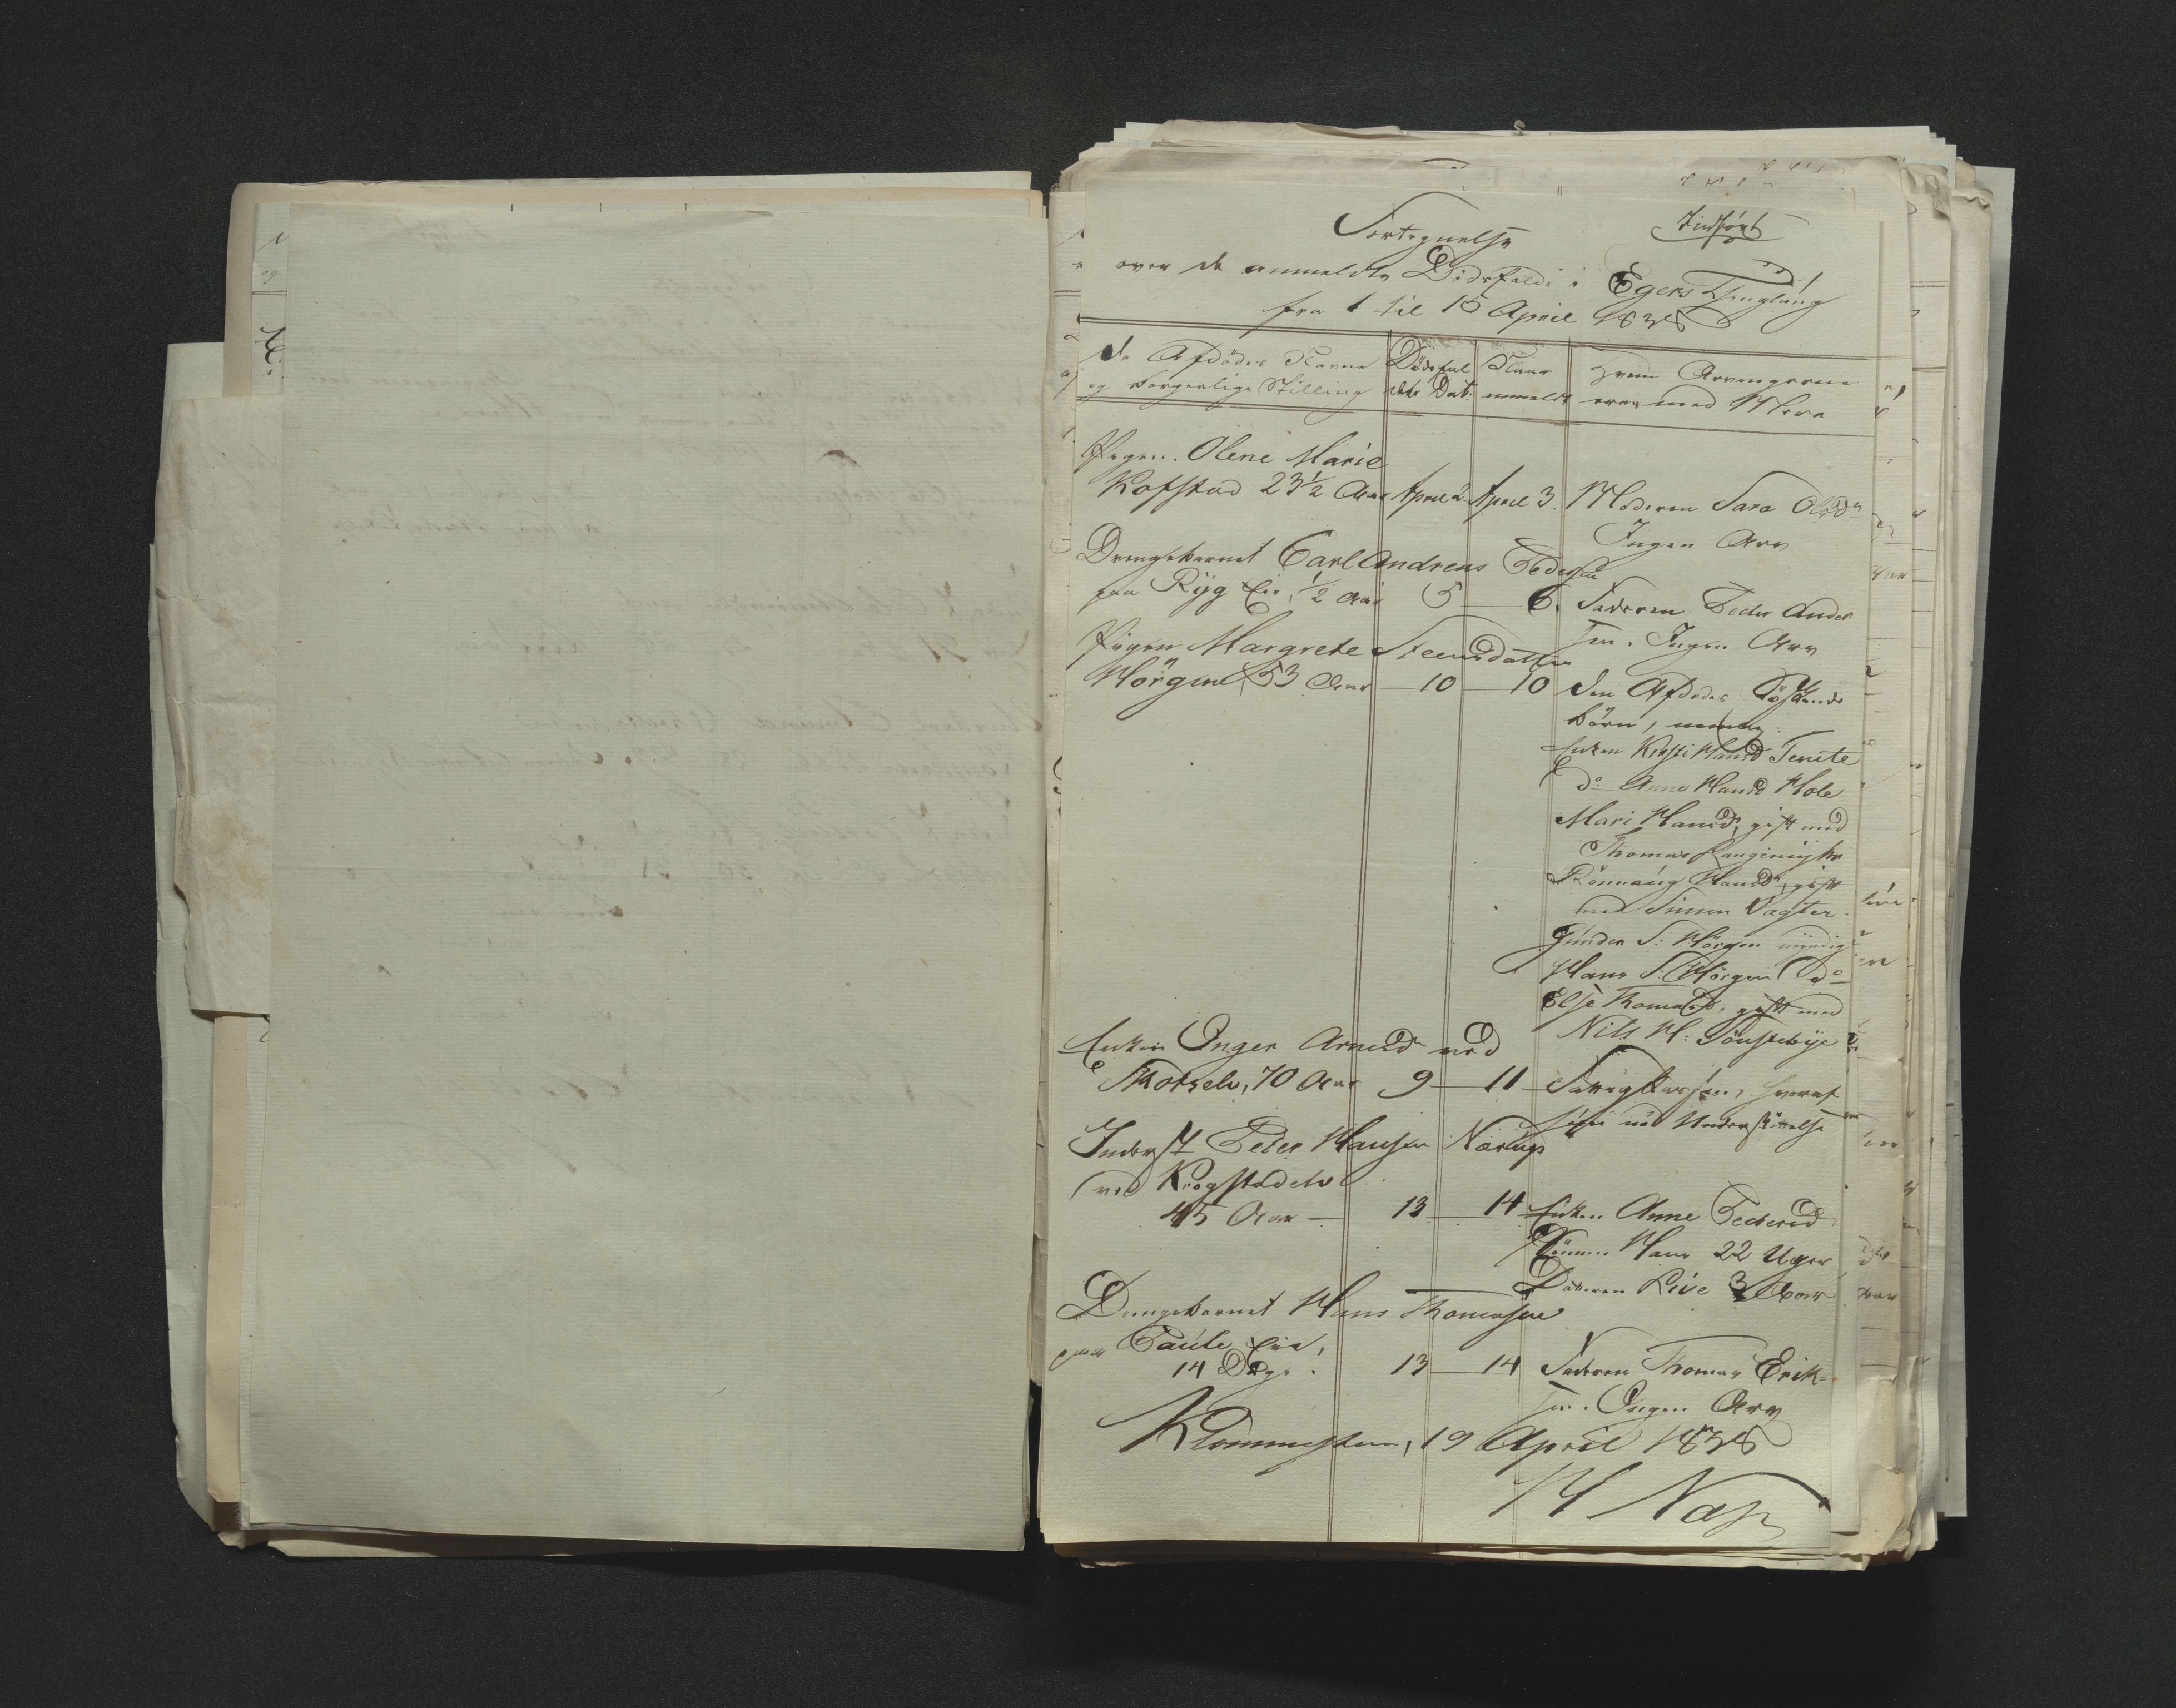 Indført
Fortegnelse
over de anmeldte Dødsfald i Egers Thinglaug
fra 1 til 15 April 1838
De Afdödes Navne
og borgerlige Stilling
Dödsfal
dets Dat.
Naar
anmeldt
Hvem Arvingerne
ere, med Mere
Pigen Olene Marie
Kofstad 23 1/2 Aar April 2 April 3. Moderen Sara Olsd
Ingen Arv
Drengebarnet Carl Andreas Pedersen
paa Ryg Eie, 1/2 Aar 5 6. Faderen Peder Ander
sen. Ingen Arv
Pigen Margrete Steensdatter
Hörgen, 53 Aar 10 10 den Afdödes Södskende
börn,
Enken Kirsti Hansd Temte
do Anne Hansd Hole
Mari Hansd, gift med
Thomas
Rönnaug Hansd, gift
med Simen Vegter
Gunder S: Hörgen myndig
Hans S: Hörgen do
Else Thomasd, gift med
Nils H: Sönstebye
Enken Inger Arnesd ved
Skotselv, 70 Aar 9 11 hvoraf
hun nöd Understöttelse
Inderst Peder Hansen Nærup
ved Krogstadelv
45 Aar 13 14 Enken Anne Pedersd
Sönnen Hans 22 Uger
Datteren Live 3 Aar
Drengebarnet Hans Thomesen
paa Taule Eie,
14 Dage. 13 14 Faderen Thomas Erik-
sen. Ingen Arv
19 April 1838
H Nap